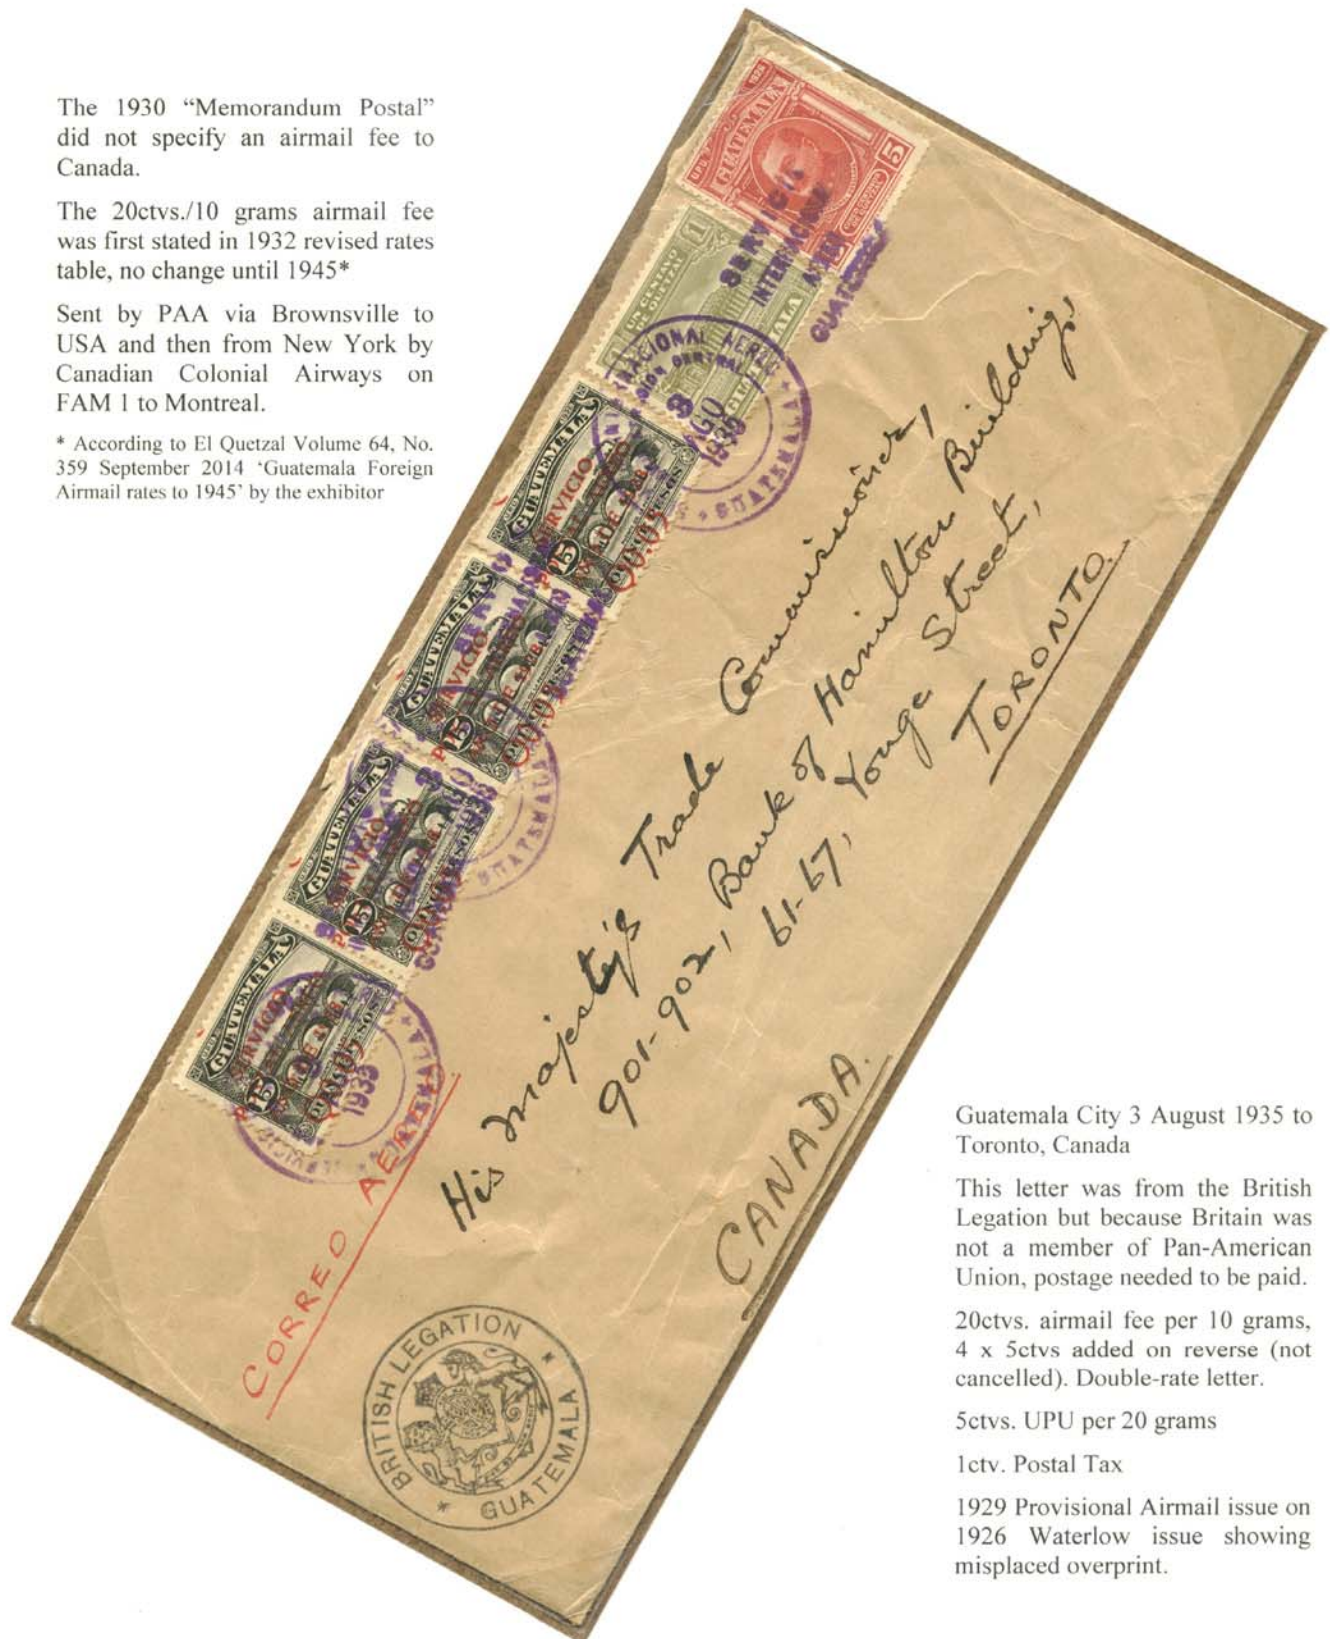 The 1930 “Memorandum Postal”
did not specify an airmail fee to
Canada.
The 20ctvs./10 grams airmail fee
was first stated in 1932 revised rates
table, no change until 1945*
Sent by PAA via Brownsville to
USA and then from New York by
Canadian Colonial Airways on
FAM 1 to Montreal.
* According to El Quetzal Volume 64, No.
359 September 2014 ‘Guatemala Foreign
Airmail rates to 1945’ by the exhibitor
GUATEMALA
5
UN CENTAVO
DE QUETZAL
1
GUATEMALA
SERVICIO
INTERNACIONAL
AEREO
GUATEMALA
INTERNACIONAL AEREO
GUATEMALA
3
AGO
1935
GUATEMALA
15
SERVICIO
QUINCE PESOS
GUATEMALA
15
SERVICIO
QUINCE PESOS
3
AGO
1935
GUATEMALA
GUATEMALA
15
SERVICIO
GUATEMALA
15
SERVICIO
1935
GUATEMALA
His Majesty's Trade Commissioner,
901-902, Bank of Hamilton Buildings
61-67, Yonge Street,
TORONTO.
CANADA.
CORREO AEREO
BRITISH LEGATION
* GUATEMALA *
Guatemala City 3 August 1935 to
Toronto, Canada
This letter was from the British
Legation but because Britain was
not a member of Pan-American
Union, postage needed to be paid.
20ctvs. airmail fee per 10 grams,
4 x 5ctvs added on reverse (not
cancelled). Double-rate letter.
5ctvs. UPU per 20 grams
1ctv. Postal Tax
1929 Provisional Airmail issue on
1926 Waterlow issue showing
misplaced overprint.